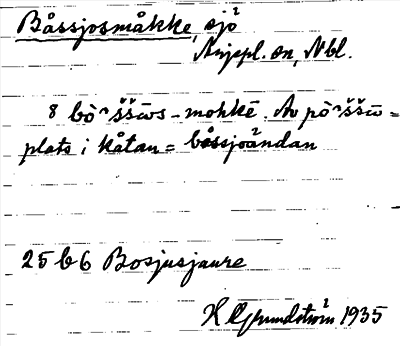 Båssjosmåkke, sjö
Arjepl. sn, Nbl.
8 bò^ššūs-mohkē. Av pò^ššū=
plats i kåtan = båssjoändan
25 b 6 Bosjusjaure
H Grundström 1935